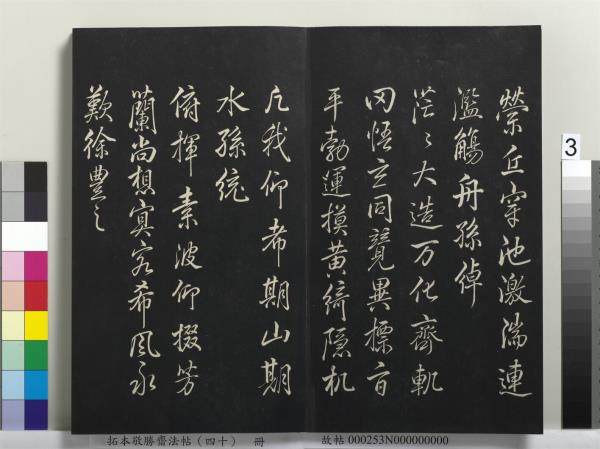 縈丘穿池激湍連
濫觴舟孫倬
茫〻大造万化齊軌
罔悟玄同競異摽旨
平勃運摸黃綺隱机
凡我仰希期山期
水孫統
俯揮素波仰掇芳
蘭尚想冥客希風永
歎徐豊之
3
拓本敬勝齋法帖（四十） 冊
故帖 000253N000000000